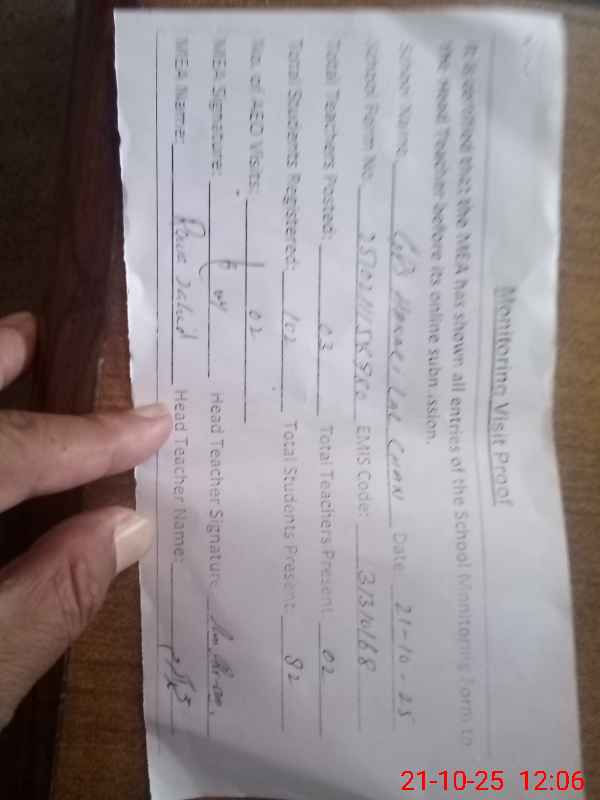 Monitoring Visit Proof
It is certified that the MEA has shown all entries of the School Monitoring Form to
the Head Teacher before its online submission.
School Name: Date 21-10-25
School Form No: EMIS Code: 31310168
Total Teachers Posted: 03 Total Teachers Present 02
Total Students Registered: 102 Total Students Present 82
No. of AEO Visits: 02
MEA Signature: Head Teacher Signature
MEA Name: Head Teacher Name:
21-10-25 12:06